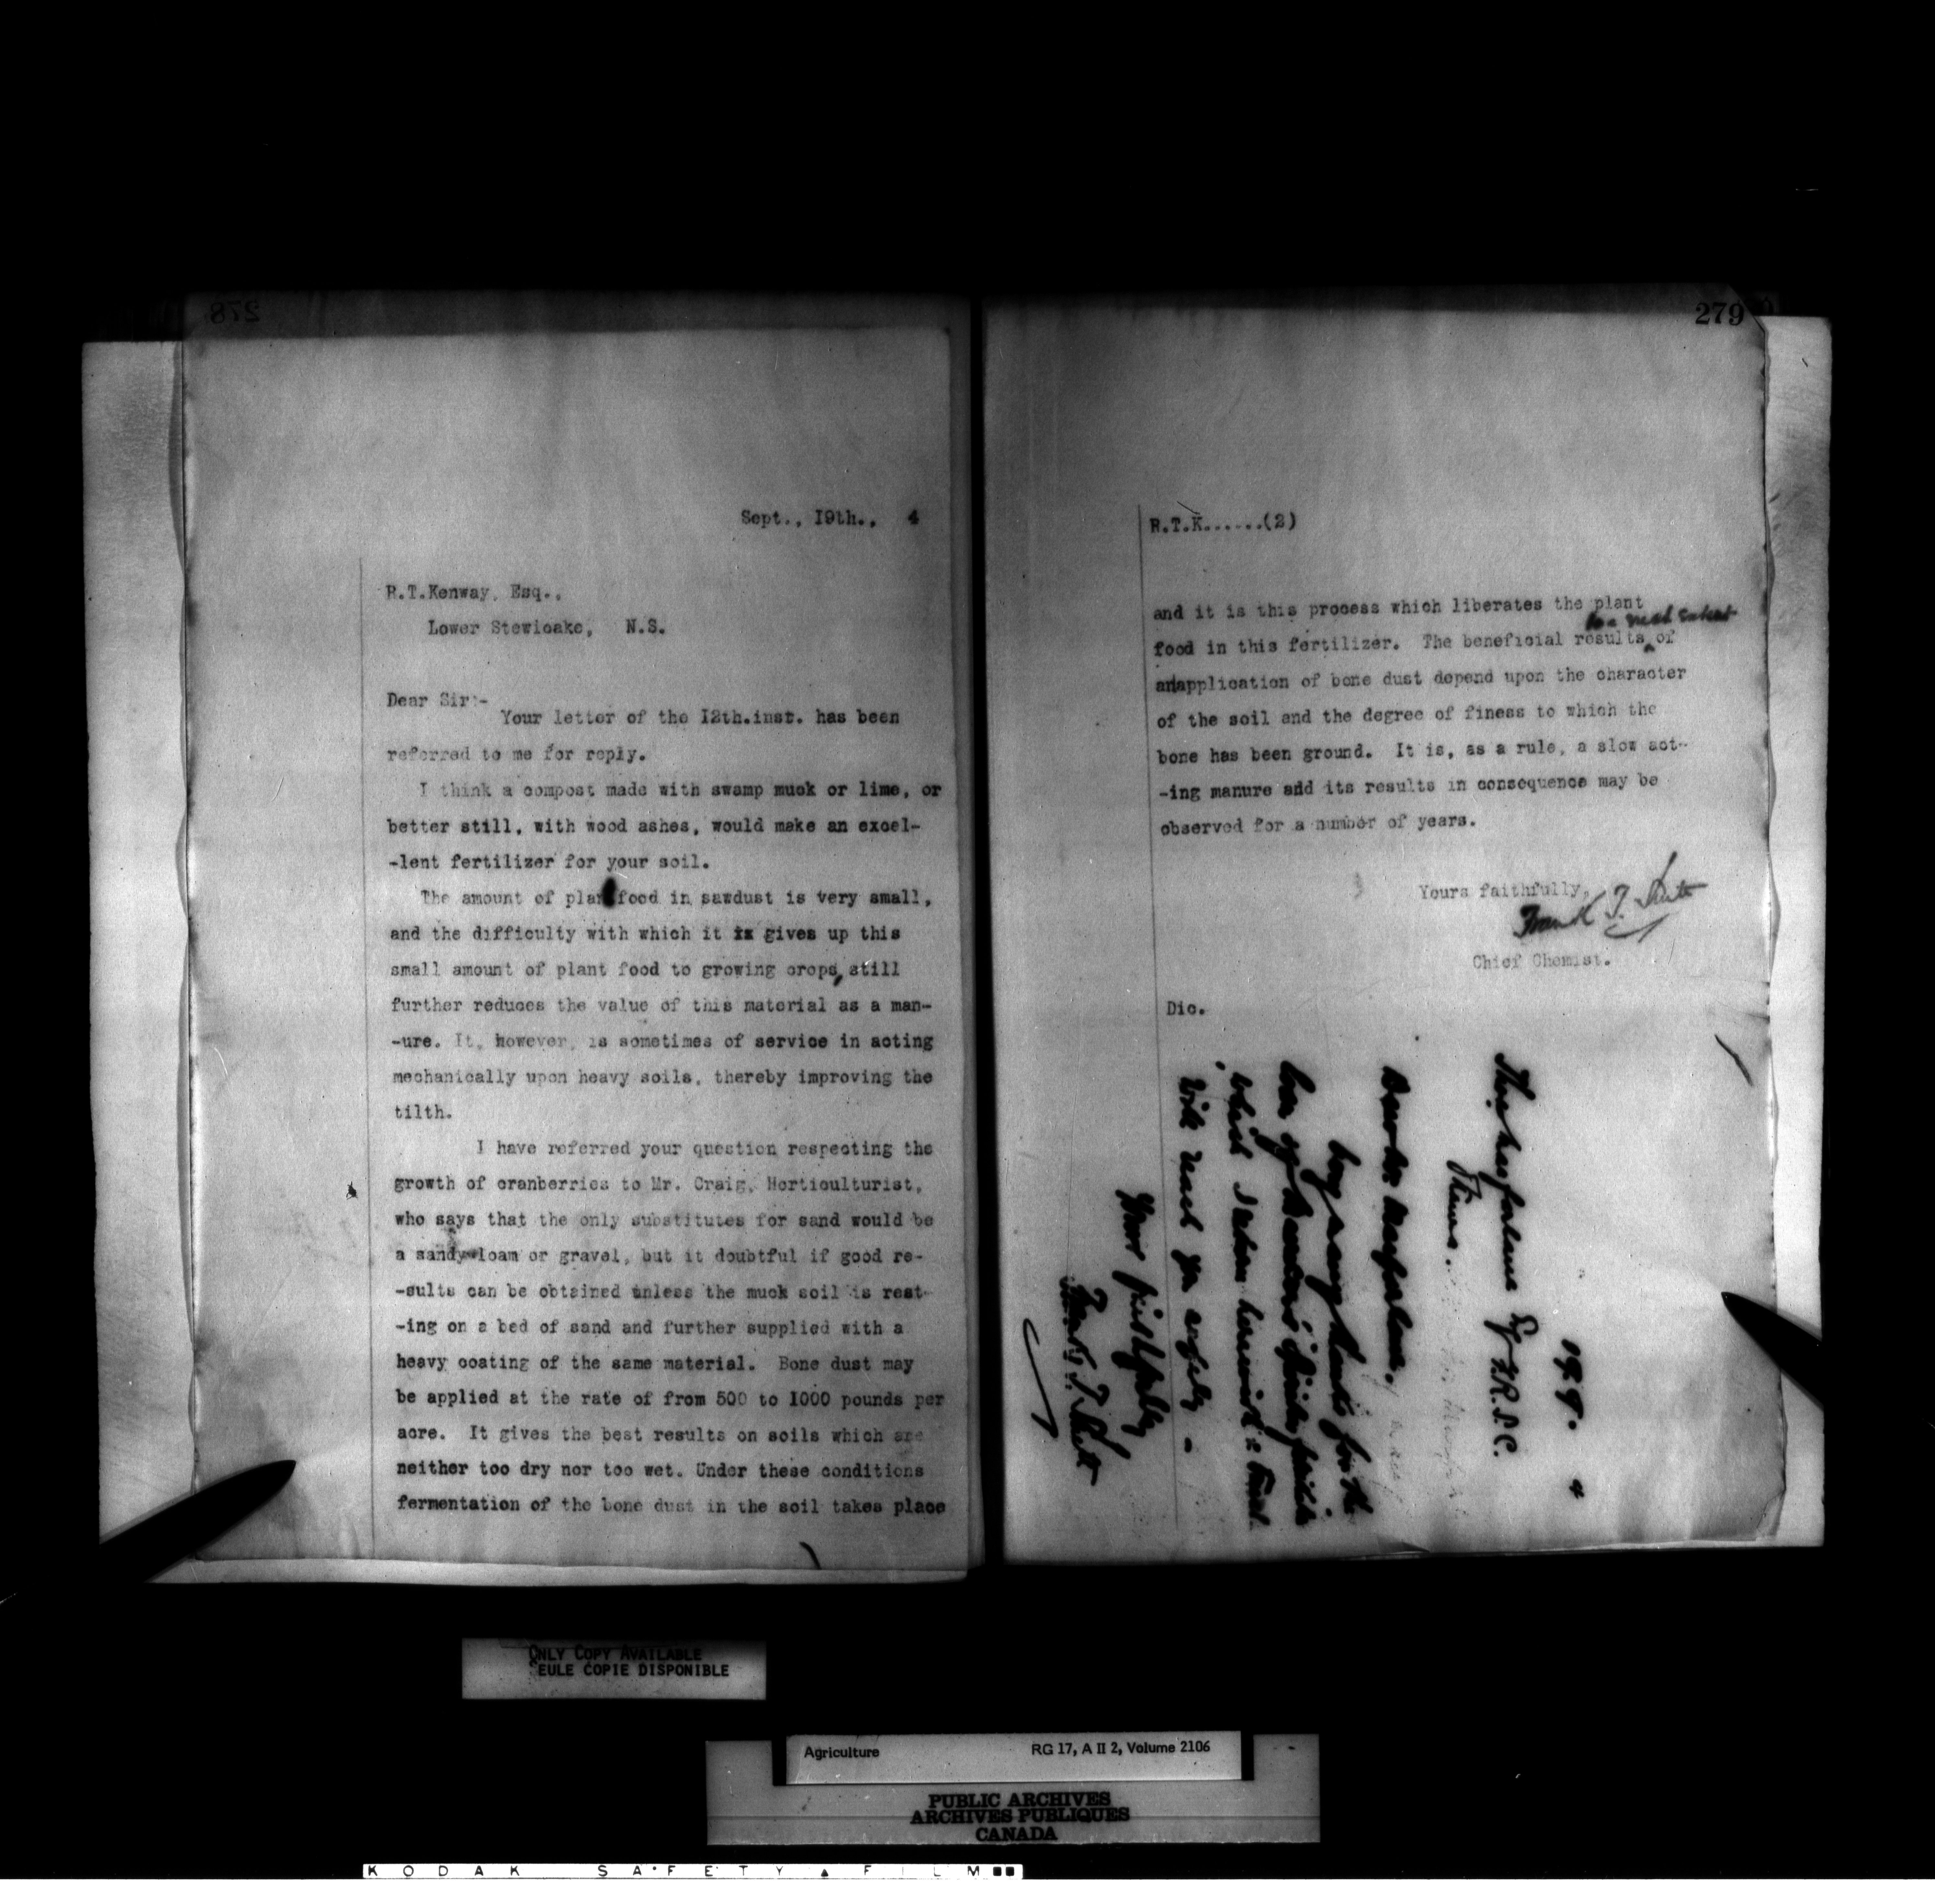 278
Sept., 19th., 4
R.T.Kenway, Esq.,
Lower Stewioake, N.S.
Dear Sir:-
Your letter of the 12th.inst. has been
referred to me for reply.
I think a compost made with swamp muck or lime, or
better still, with wood ashes, would make an excel-
-lent fertilizer for your soil.
The amount of plant food in sawdust is very small,
and the difficulty with which it ix gives up this
small amount of plant food to growing crops, still
further reduces the value of this material as a man-
-ure. It, however, is sometimes of service in acting
mechanically upon heavy soils, thereby improving the
tilth.
I have referred your question respecting the
growth of cranberries to Mr. Craig, Horticulturist,
who says that the only substitutes for sand would be
a sandy loam or gravel, but it doubtful if good re-
-sults can be obtained unless the muck soil is rest-
-ing on a bed of sand and further supplied with a
heavy coating of the same material. Bone dust may
be applied at the rate of from 500 to 1000 pounds per
acre. It gives the best results on soils which are
neither too dry nor too wet. Under these conditions
fermentation of the bone dust in the soil takes place
279
R.T.K......(2)
and it is this process which liberates the plant
to a great extent
food in this fertilizer. The beneficial results of
an application of bone dust depend upon the character
of the soil and the degree of finess to which the
bone has been ground. It is, as a rule, a slow act-
-ing manure and its results in consequence may be
observed for a number of years.
Yours faithfully,
Frank T. Shutt
Chief Chemist.
Dic.
19 9. 4
Thos Macfarlane Esq F.R.S.C.
Dear Mr. Macfarlane.
Many thanks for the
which I return herewith & trust
will reach you safely -
Yours faithfully
Frank T. Shutt
ONLY COPY AVAILABLE
SEULE COPIE DISPONIBLE
Agriculture RG 17, A II 2, Volume 2106
PUBLIC ARCHIVES
ARCHIVES PUBLIQUES
CANADA
KODAK SAFETY FILM